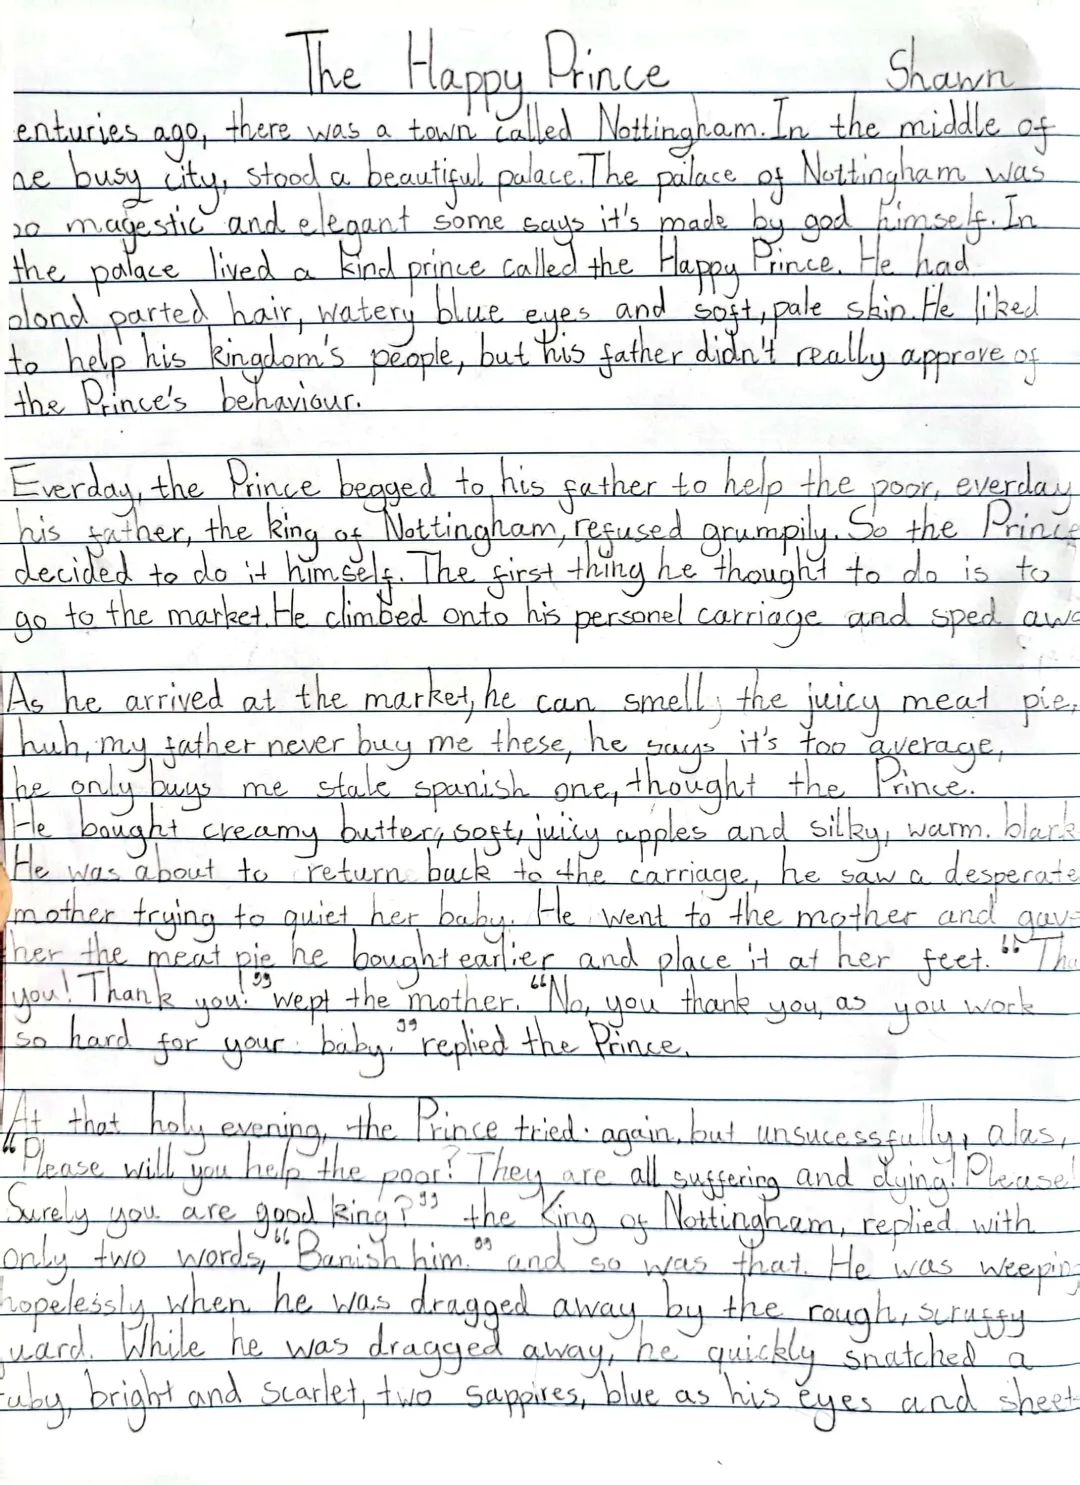 The Happy Prince Shawn
enturies ago, there was a town called Nottingham. In the middle of
he busy city, stood a beautiful palace. The palace of Nottingham was
so magestic and elegant some says it's made by god himself. In
the palace lived a kind prince called the Happy Prince. He had
blond parted hair, watery blue eyes and soft, pale skin. He liked
to help his kingdom's people, but his father didn't really approve of
the Prince's behaviour.
Everday, the Prince begged to his father to help the poor, everday
his father, the king of Nottingham, refused grumpily. So the Prince
decided to do it himself. The first thing he thought to do is to
go to the market. He climbed onto his personel carriage and sped awa
As he arrived at the market, he can smell, the juicy meat pie,
huh, my father never buy me these, he says it's too average,
he only buys me stale spanish one, thought the Prince.
He bought creamy butter, soft, juicy apples and silky, warm. blark
He was about to return back to the carriage, he saw a desperate
mother trying to quiet her baby. He went to the mother and gave
her the meat pie he bought earlier and place it at her feet. "Tha
you! Thank you!" wept the mother. "No, you thank you, as you work
so hard for your baby." replied the Prince.
At that holy evening, the Prince tried again, but unsucessfully, alas,
"Please will you help the poor? They are all suffering and dying! Please!
Surely you are good king?" the King of Nottingham, replied with
only two words, "Banish him." and so was that. He was weeping
hopelessly, when he was dragged away by the rough, scruffy
guard. While he was dragged away, he quickly snatched a
ruby, bright and scarlet, two sappires, blue as his eyes and sheet